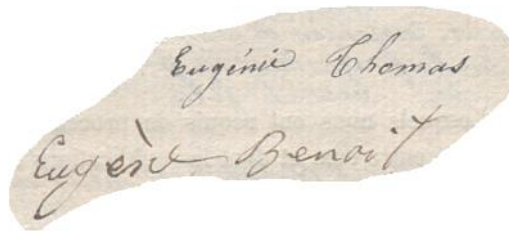 Eugénie Thomas
Eugène Benoit